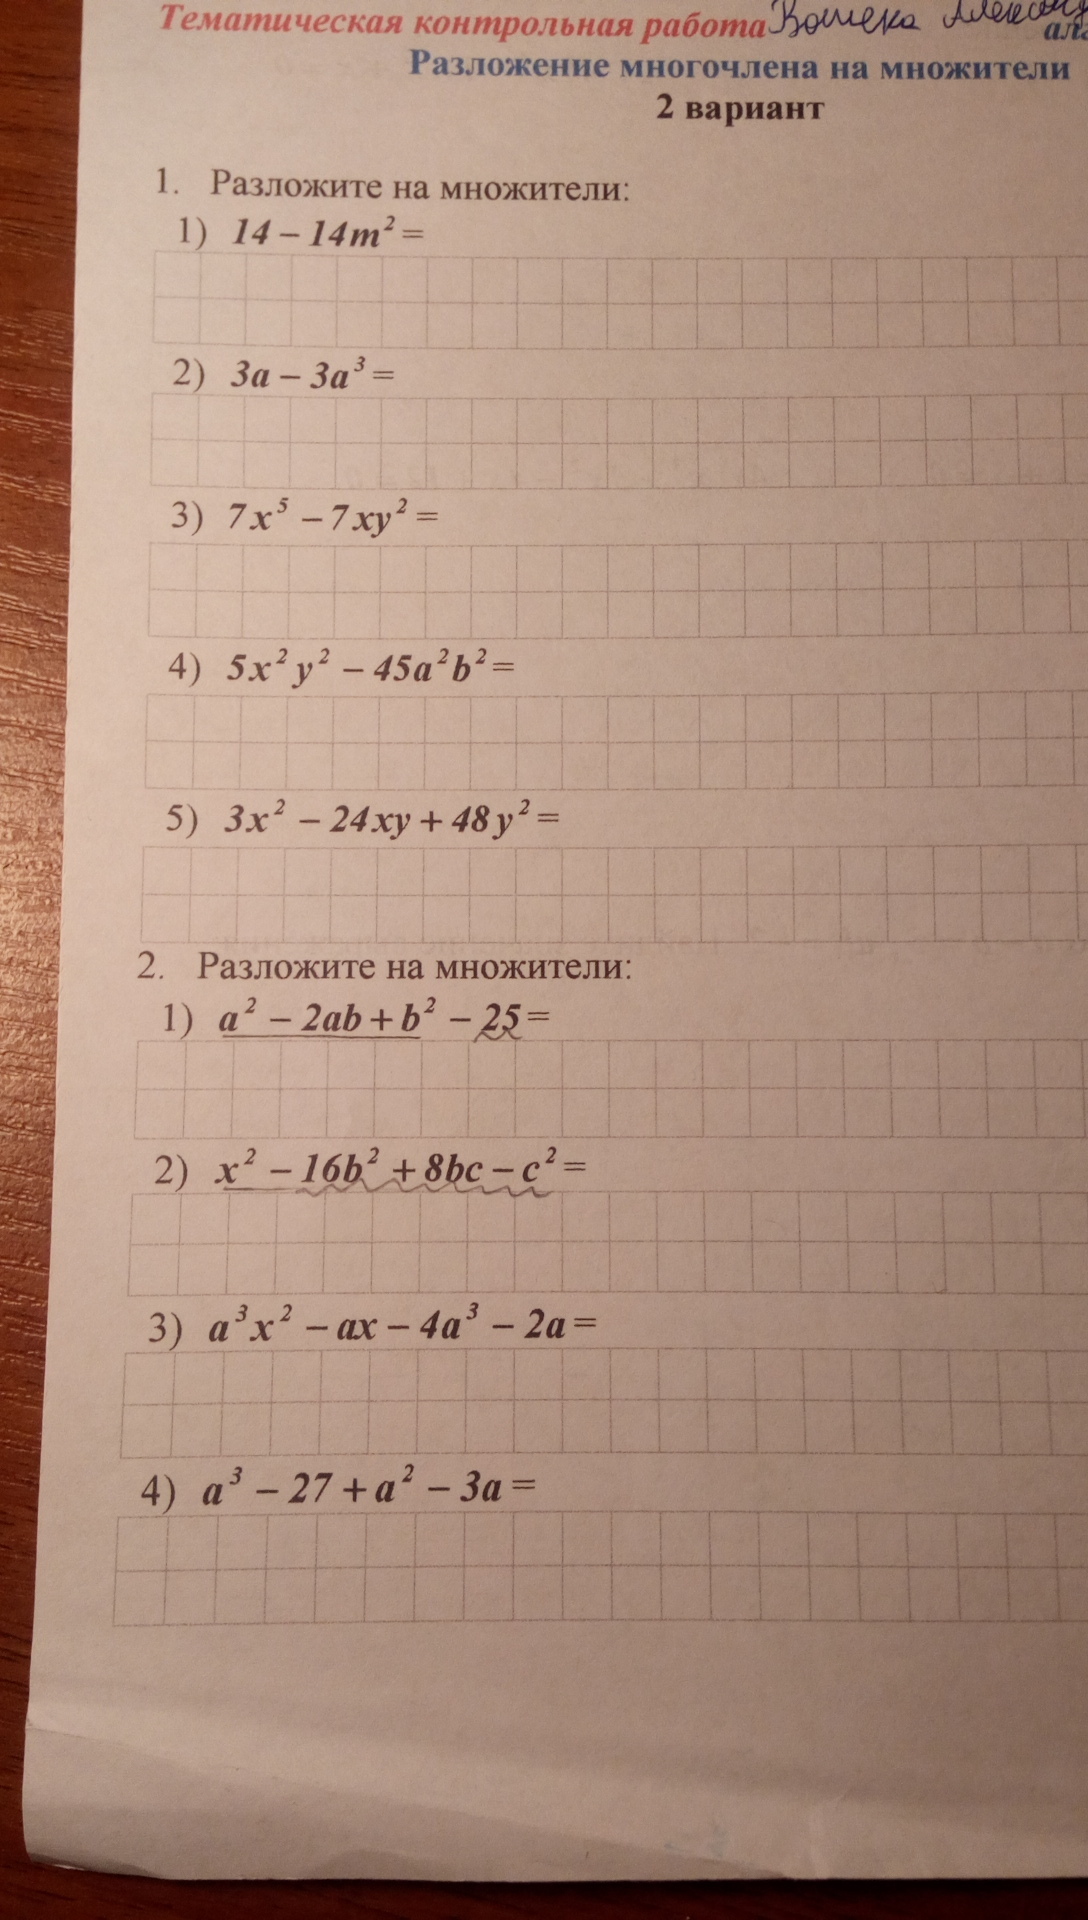 Тематическая контрольная работа
Разложение многочлена на множители
2 вариант
1. Разложите на множители:
1) 14 – 14m² =
2) 3a – 3a³ =
3) 7x⁵ – 7xy² =
4) 5x²y² – 45a²b² =
5) 3x² – 24xy + 48y² =
2. Разложите на множители:
1) a² – 2ab + b² – 25 =
2) x² – 16b² + 8bc – c² =
3) a³x² – ax – 4a³ – 2a =
4) a³ – 27 + a² – 3a =